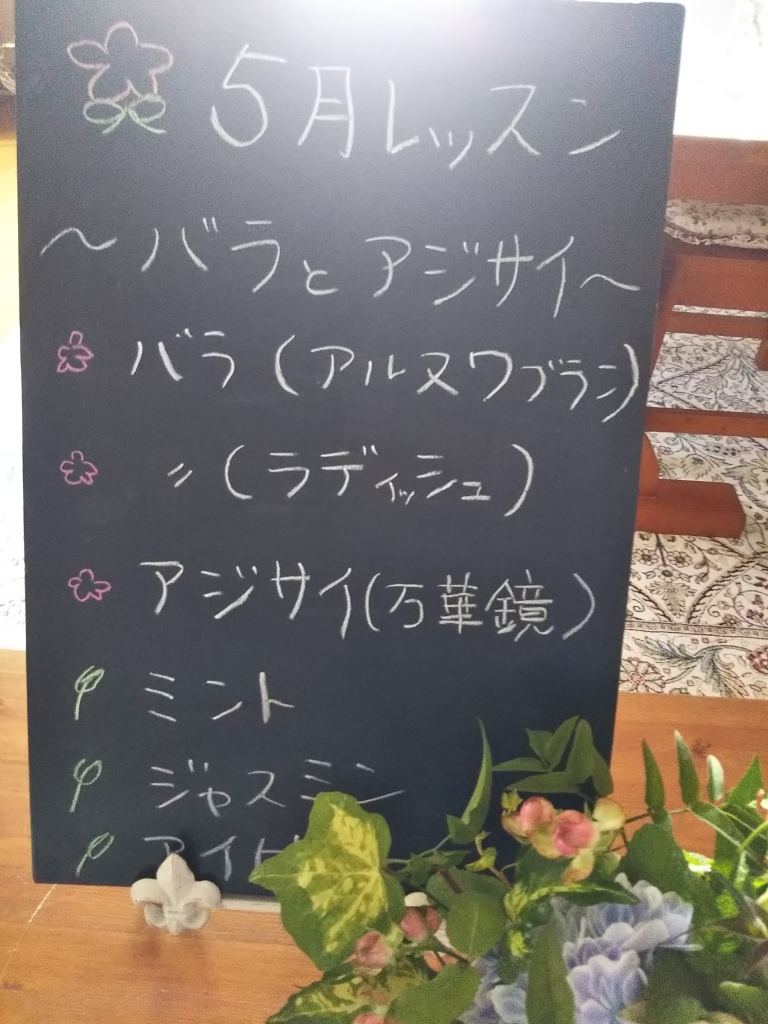 5月レッスン
～バラとアジサイ～
バラ(アルヌワブラン)
〃(ラディッシュ)
アジサイ(万華鏡)
ミント
ジャスミン
アイビ